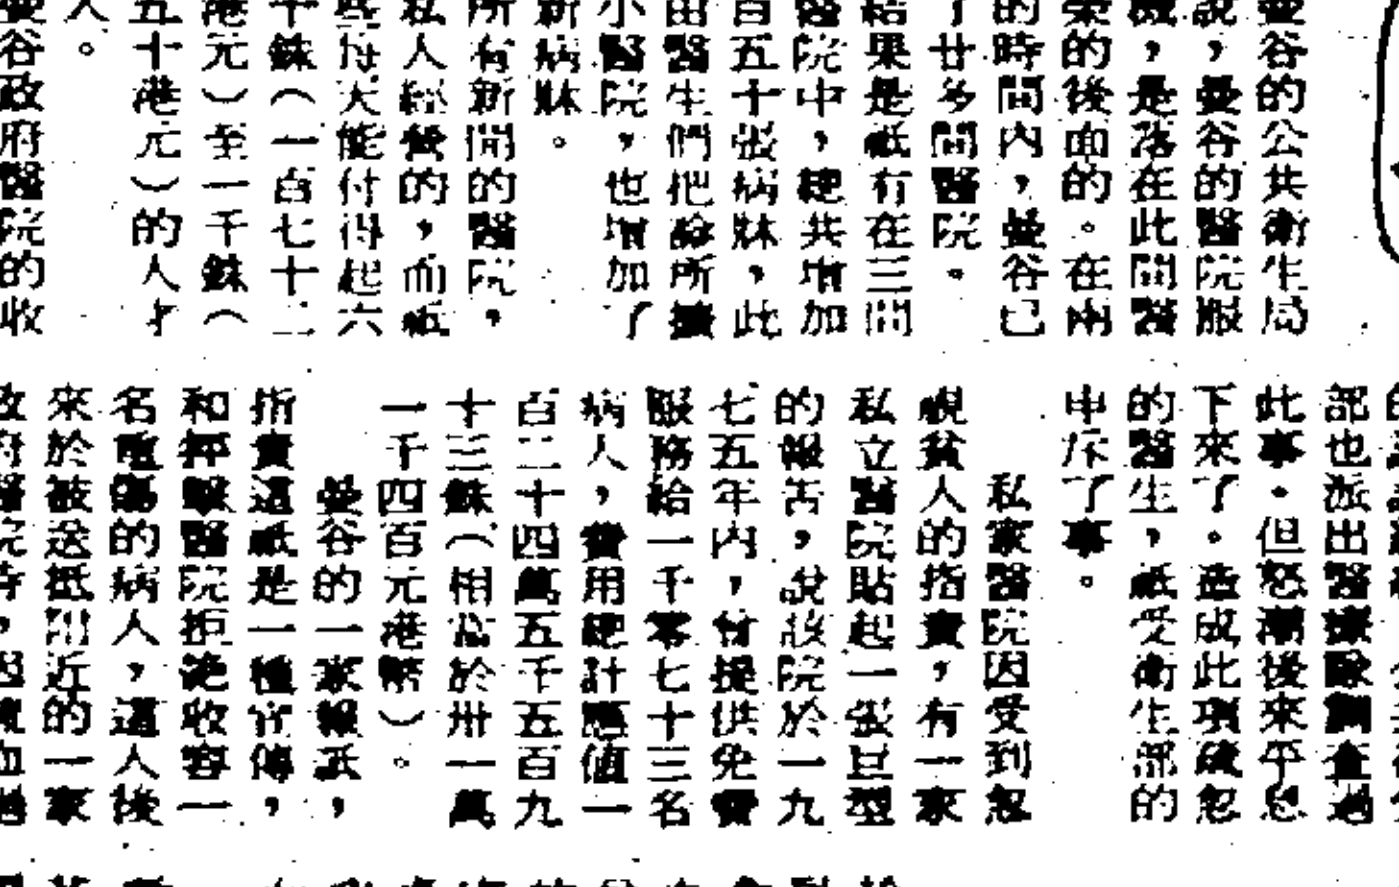 曼谷的公共衛生局
說，曼谷的醫院服
，是落在此間醫
的後面的。在兩
的時間內，曼谷已
了廿多間醫院。
結果是祇有在三間
醫院中，總共增加
百五十張病牀，此
由醫生們把診所擴
小醫院，也增加了
新病牀。
所有新開的醫院，
私人經營的，而祇
些每天能付得起六
千銖（一百七十二
港元）至一千銖（
五十港元）的人才
人。
曼谷政府醫院的收
部也派出醫療隊調查過
此事。但怒潮後來平息
下來了。造成此項疏忽
的醫生，祇受衛生部的
申斥了事。
私家醫院因受到忽
視貧人的指責，有一家
私立醫院貼起一張巨型
的報告，說該院於一九
七五年內，曾提供免費
服務給一千零七十三名
病人，費用總計應值一
百二十四萬五千五百九
十三銖（相當於卅一萬
一千四百元港幣）。
曼谷的一家報紙，
指責這祇是一種宣傳，
和抨擊醫院拒絕收容一
名重傷的病人，這人後
來於被送抵附近的一家
政府醫院時，因